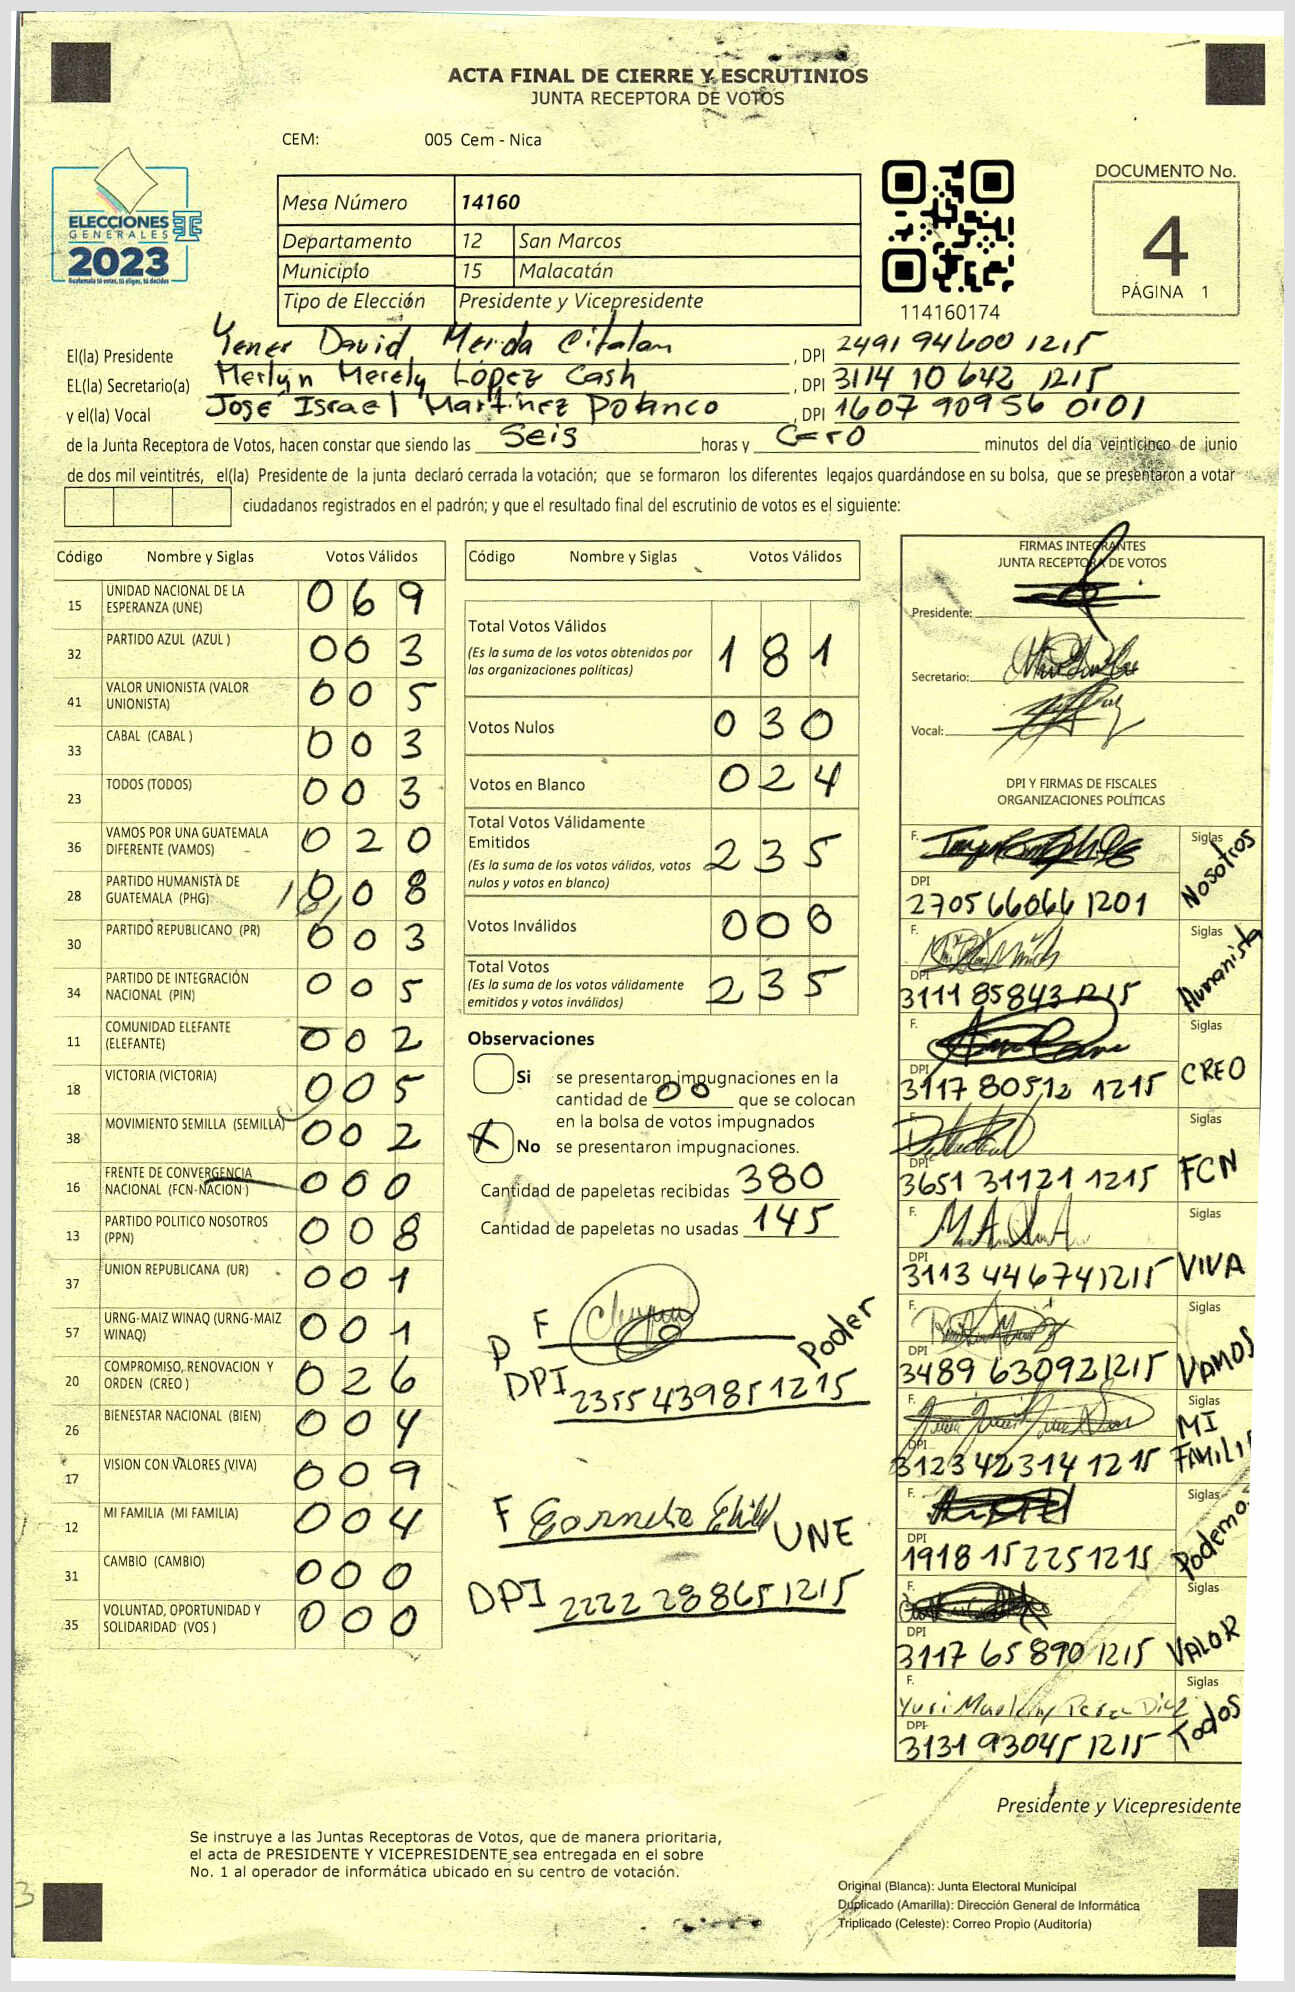 ACTA FINAL DE CIERRE Y ESCRUTINIOS
JUNTA RECEPTORA DE VOTOS
CEM: 005 Cem - Nica
ELECCIONES
GENERALES
2023
Guatemala tú votas, tú eliges, tú decides
Mesa Número 14160
Departamento 12 San Marcos
Municipio 15 Malacatán
Tipo de Elección Presidente y Vicepresidente
114160174
DOCUMENTO No.
4
PÁGINA 1
El(la) Presidente Yener David Merida Citalan, DPI 2491 94600 1215
EL(la) Secretario(a) Merlyn Merely López Cash, DPI 3114 10 642 1215
y el(la) Vocal José Israel Martínez Polanco, DPI 1607 90956 0101
de la Junta Receptora de Votos, hacen constar que siendo las Seis horas y Cero minutos del día veinticinco de junio
de dos mil veintitrés, el(la) Presidente de la junta declaró cerrada la votación; que se formaron los diferentes legajos guardándose en su bolsa, que se presentaron a votar
ciudadanos registrados en el padrón; y que el resultado final del escrutinio de votos es el siguiente:
Código Nombre y Siglas Votos Válidos
15 UNIDAD NACIONAL DE LA ESPERANZA (UNE) 069
32 PARTIDO AZUL (AZUL ) 003
41 VALOR UNIONISTA (VALOR UNIONISTA) 005
33 CABAL (CABAL ) 003
23 TODOS (TODOS) 003
36 VAMOS POR UNA GUATEMALA DIFERENTE (VAMOS) 020
28 PARTIDO HUMANISTA DE GUATEMALA (PHG) 008
181
30 PARTIDO REPUBLICANO (PR) 003
34 PARTIDO DE INTEGRACIÓN NACIONAL (PIN) 005
11 COMUNIDAD ELEFANTE (ELEFANTE) 002
18 VICTORIA (VICTORIA) 005
38 MOVIMIENTO SEMILLA (SEMILLA) 002
16 FRENTE DE CONVERGENCIA NACIONAL (FCN-NACION ) 000
13 PARTIDO POLITICO NOSOTROS (PPN) 008
37 UNION REPUBLICANA (UR) 001
57 URNG-MAIZ WINAQ (URNG-MAIZ WINAQ) 001
20 COMPROMISO, RENOVACION Y ORDEN (CREO ) 026
26 BIENESTAR NACIONAL (BIEN) 004
17 VISION CON VALORES (VIVA) 009
12 MI FAMILIA (MI FAMILIA) 004
31 CAMBIO (CAMBIO) 000
35 VOLUNTAD, OPORTUNIDAD Y SOLIDARIDAD (VOS ) 000
Código Nombre y Siglas Votos Válidos
Total Votos Válidos 181
(Es la suma de los votos obtenidos por
las organizaciones políticas)
Votos Nulos 030
Votos en Blanco 024
Total Votos Válidamente
Emitidos 235
(Es la suma de los votos válidos, votos
nulos y votos en blanco)
Votos Inválidos 000
Total Votos 235
(Es la suma de los votos válidamente
emitidos y votos inválidos)
Observaciones
Si se presentaron impugnaciones en la
cantidad de 00 que se colocan
en la bolsa de votos impugnados
X No se presentaron impugnaciones.
Cantidad de papeletas recibidas 380
Cantidad de papeletas no usadas 145
F
Pooler
DPI 2355439851215
F
UNE
DPI 2222 28865 1215
FIRMAS INTEGRANTES
JUNTA RECEPTORA DE VOTOS
Presidente:
Secretario:
Vocal:
DPI Y FIRMAS DE FISCALES
ORGANIZACIONES POLÍTICAS
F. Siglas Nosotros
DPI 2705 66066 1201
F. Siglas Humanista
DPI 3111 85843 1215
F. Siglas CREO
DPI 3117 80512 1215
F. Siglas FCN
DPI 3651 31121 1215
F. Siglas VIVA
DPI 3113 44674 1215
F. Siglas VAMOS
DPI 3489 63092 1215
F. Siglas MI FAMILI
DPI 3123 42314 1215
F. Siglas Podemo
DPI 1918 15225 1215
F. Siglas VALOR
DPI 3117 65 890 1215
F. Siglas Todos
DPI 3131 93045 1215
Presidente y Vicepresidente
Se instruye a las Juntas Receptoras de Votos, que de manera prioritaria,
el acta de PRESIDENTE Y VICEPRESIDENTE sea entregada en el sobre
No. 1 al operador de informática ubicado en su centro de votación.
Original (Blanca): Junta Electoral Municipal
Duplicado (Amarilla): Dirección General de Informática
Triplicado (Celeste): Correo Propio (Auditoría)